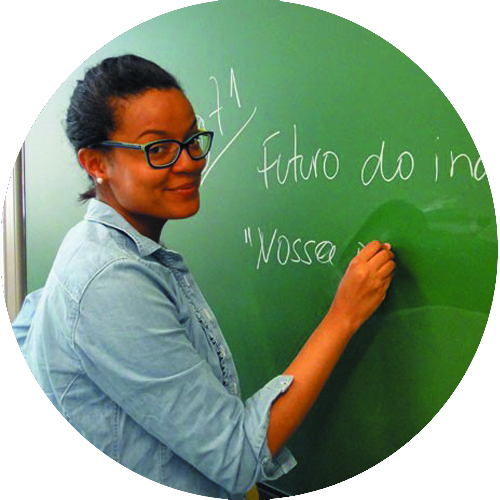 71
Futuro do ind
"Nossa